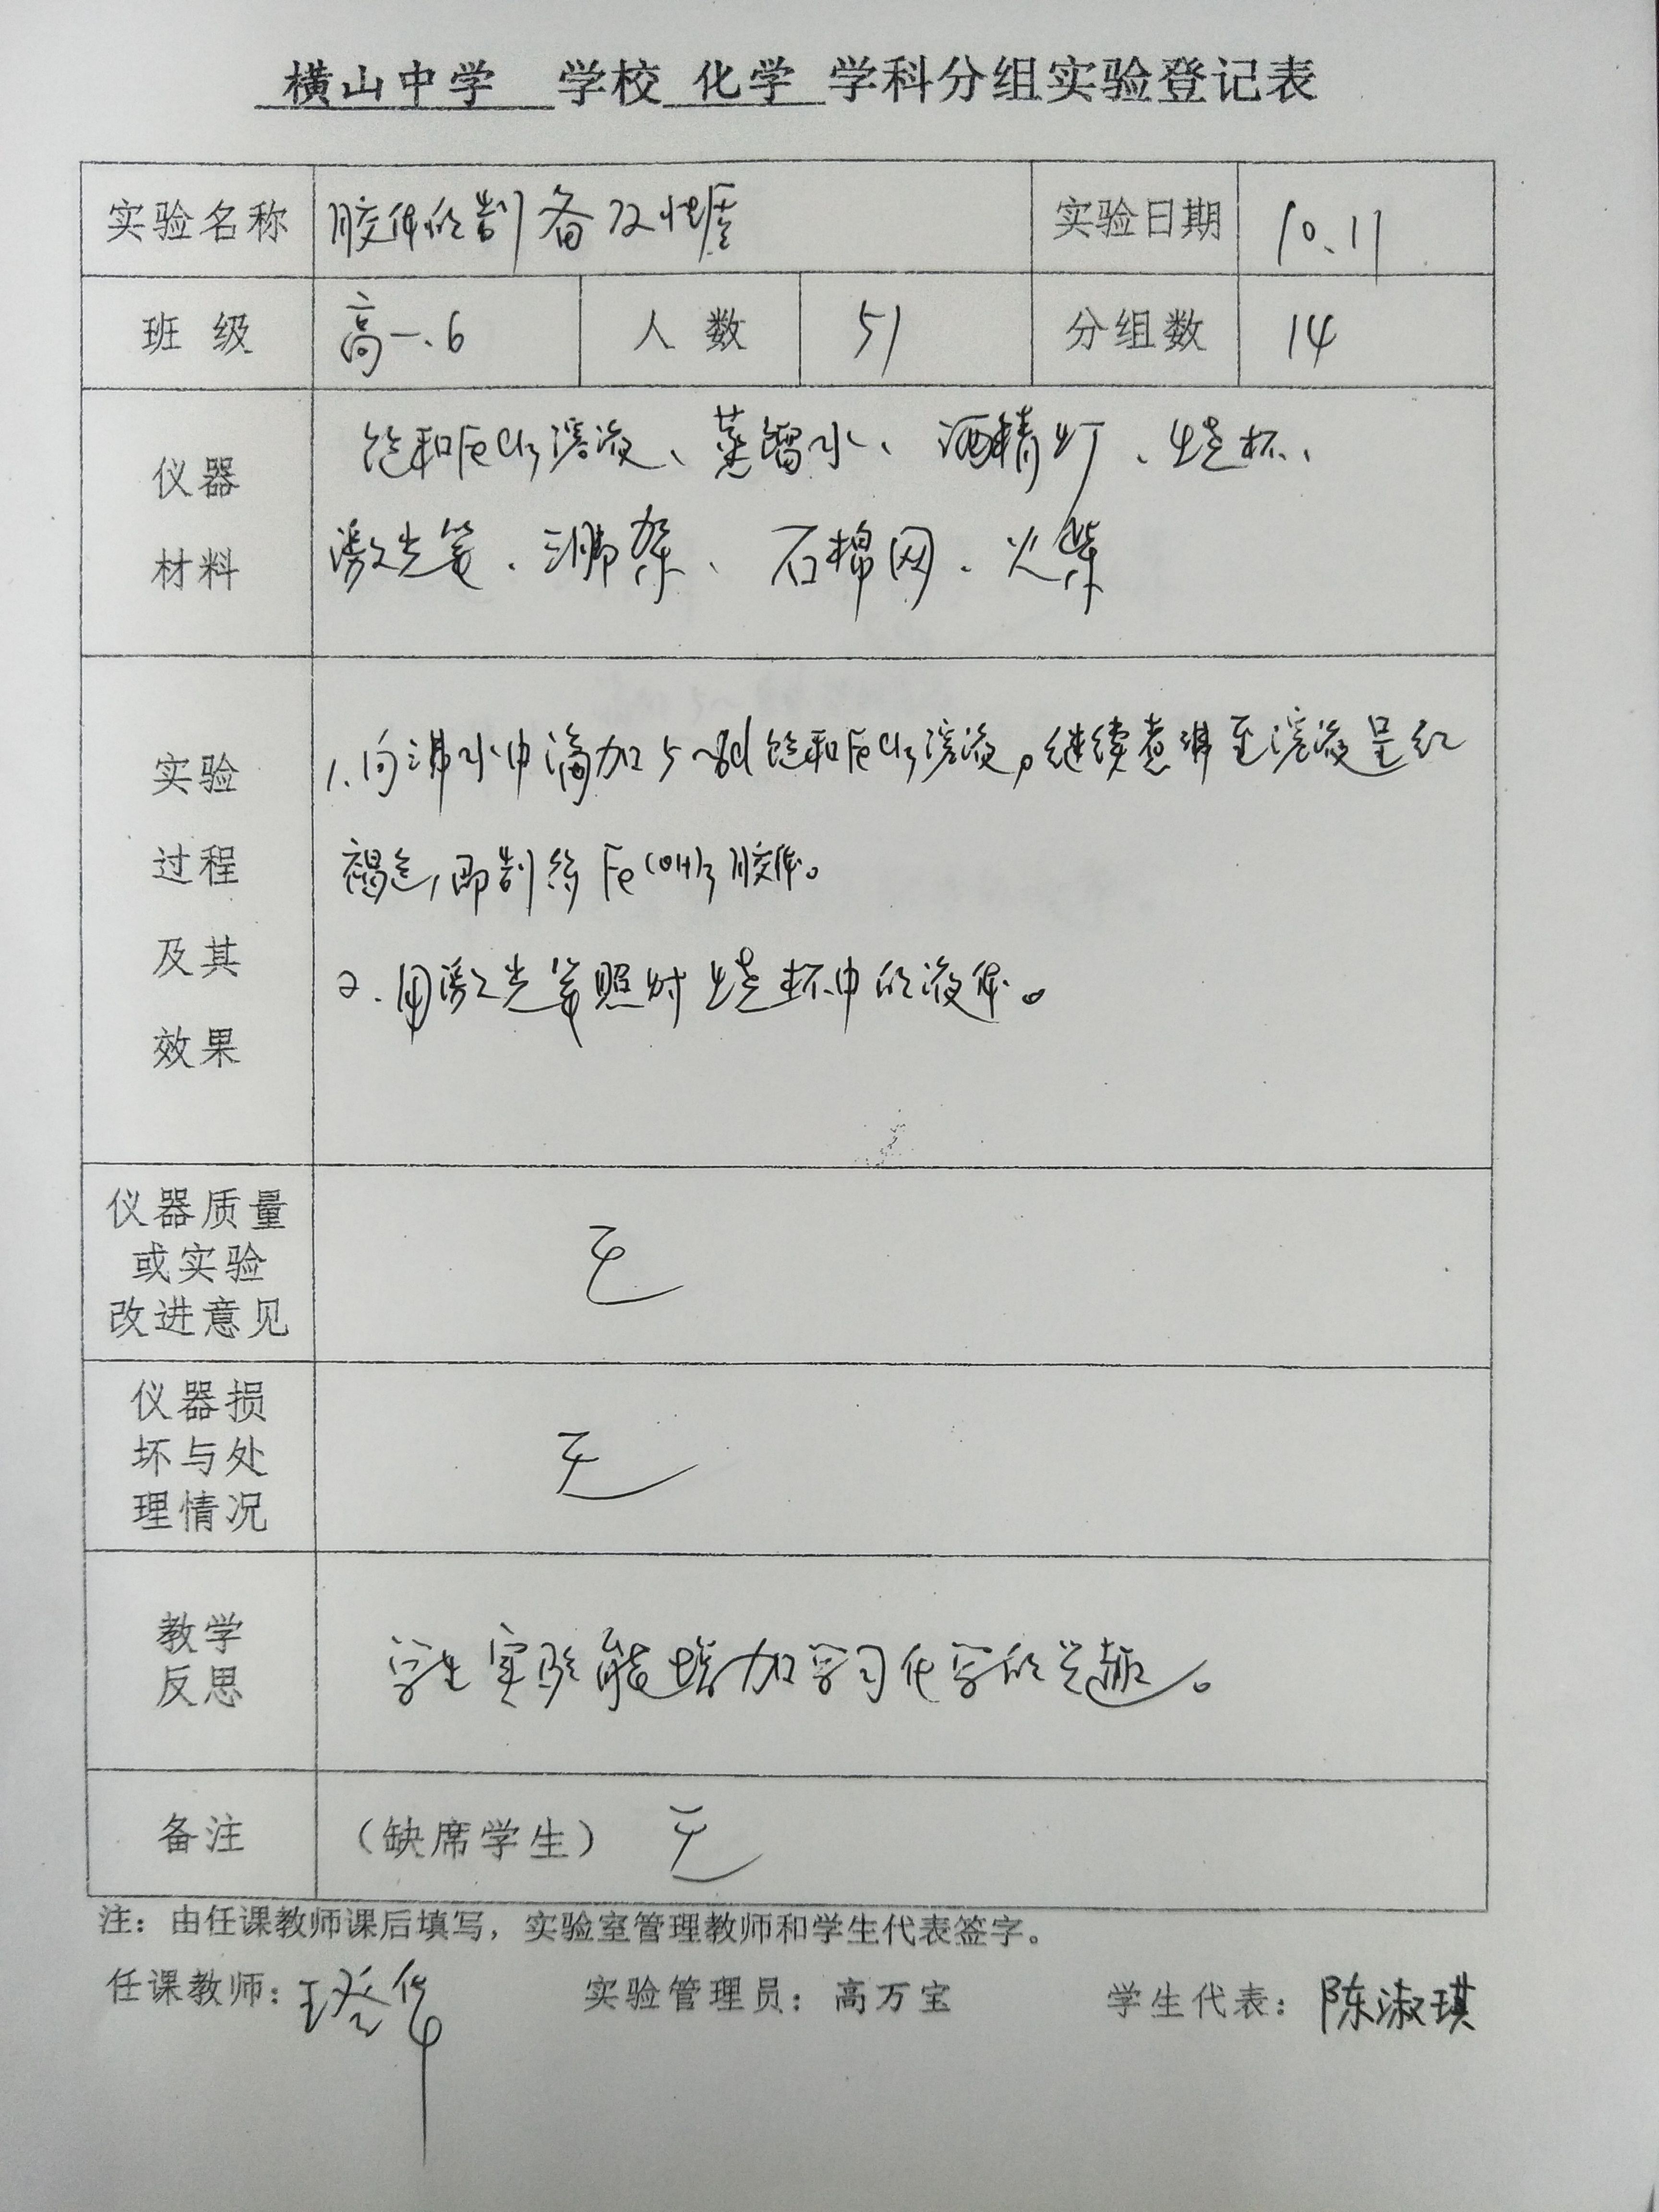 横山中学 学校 化学 学科分组实验登记表
实验名称 胶体的制备及性质 实验日期 10.11
班 级 高一.6 人 数 51 分组数 14
仪器
材料
饱和FeCl3溶液、蒸馏水、酒精灯、烧杯、
激光笔、三脚架、石棉网、火柴
实验
过程
及其
效果
1.向沸水中滴加5~6d饱和FeCl3溶液,继续煮沸至溶液呈红
褐色,即制得Fe(OH)3胶体。
2.用激光笔照射烧杯中的液体。
仪器质量
或实验
改进意见
无
仪器损
坏与处
理情况
无
教学
反思
学生实验能增加学习化学的兴趣。
备注 (缺席学生) 无
注:由任课教师课后填写,实验室管理教师和学生代表签字。
任课教师: 实验管理员:高万宝 学生代表:陈淑琪